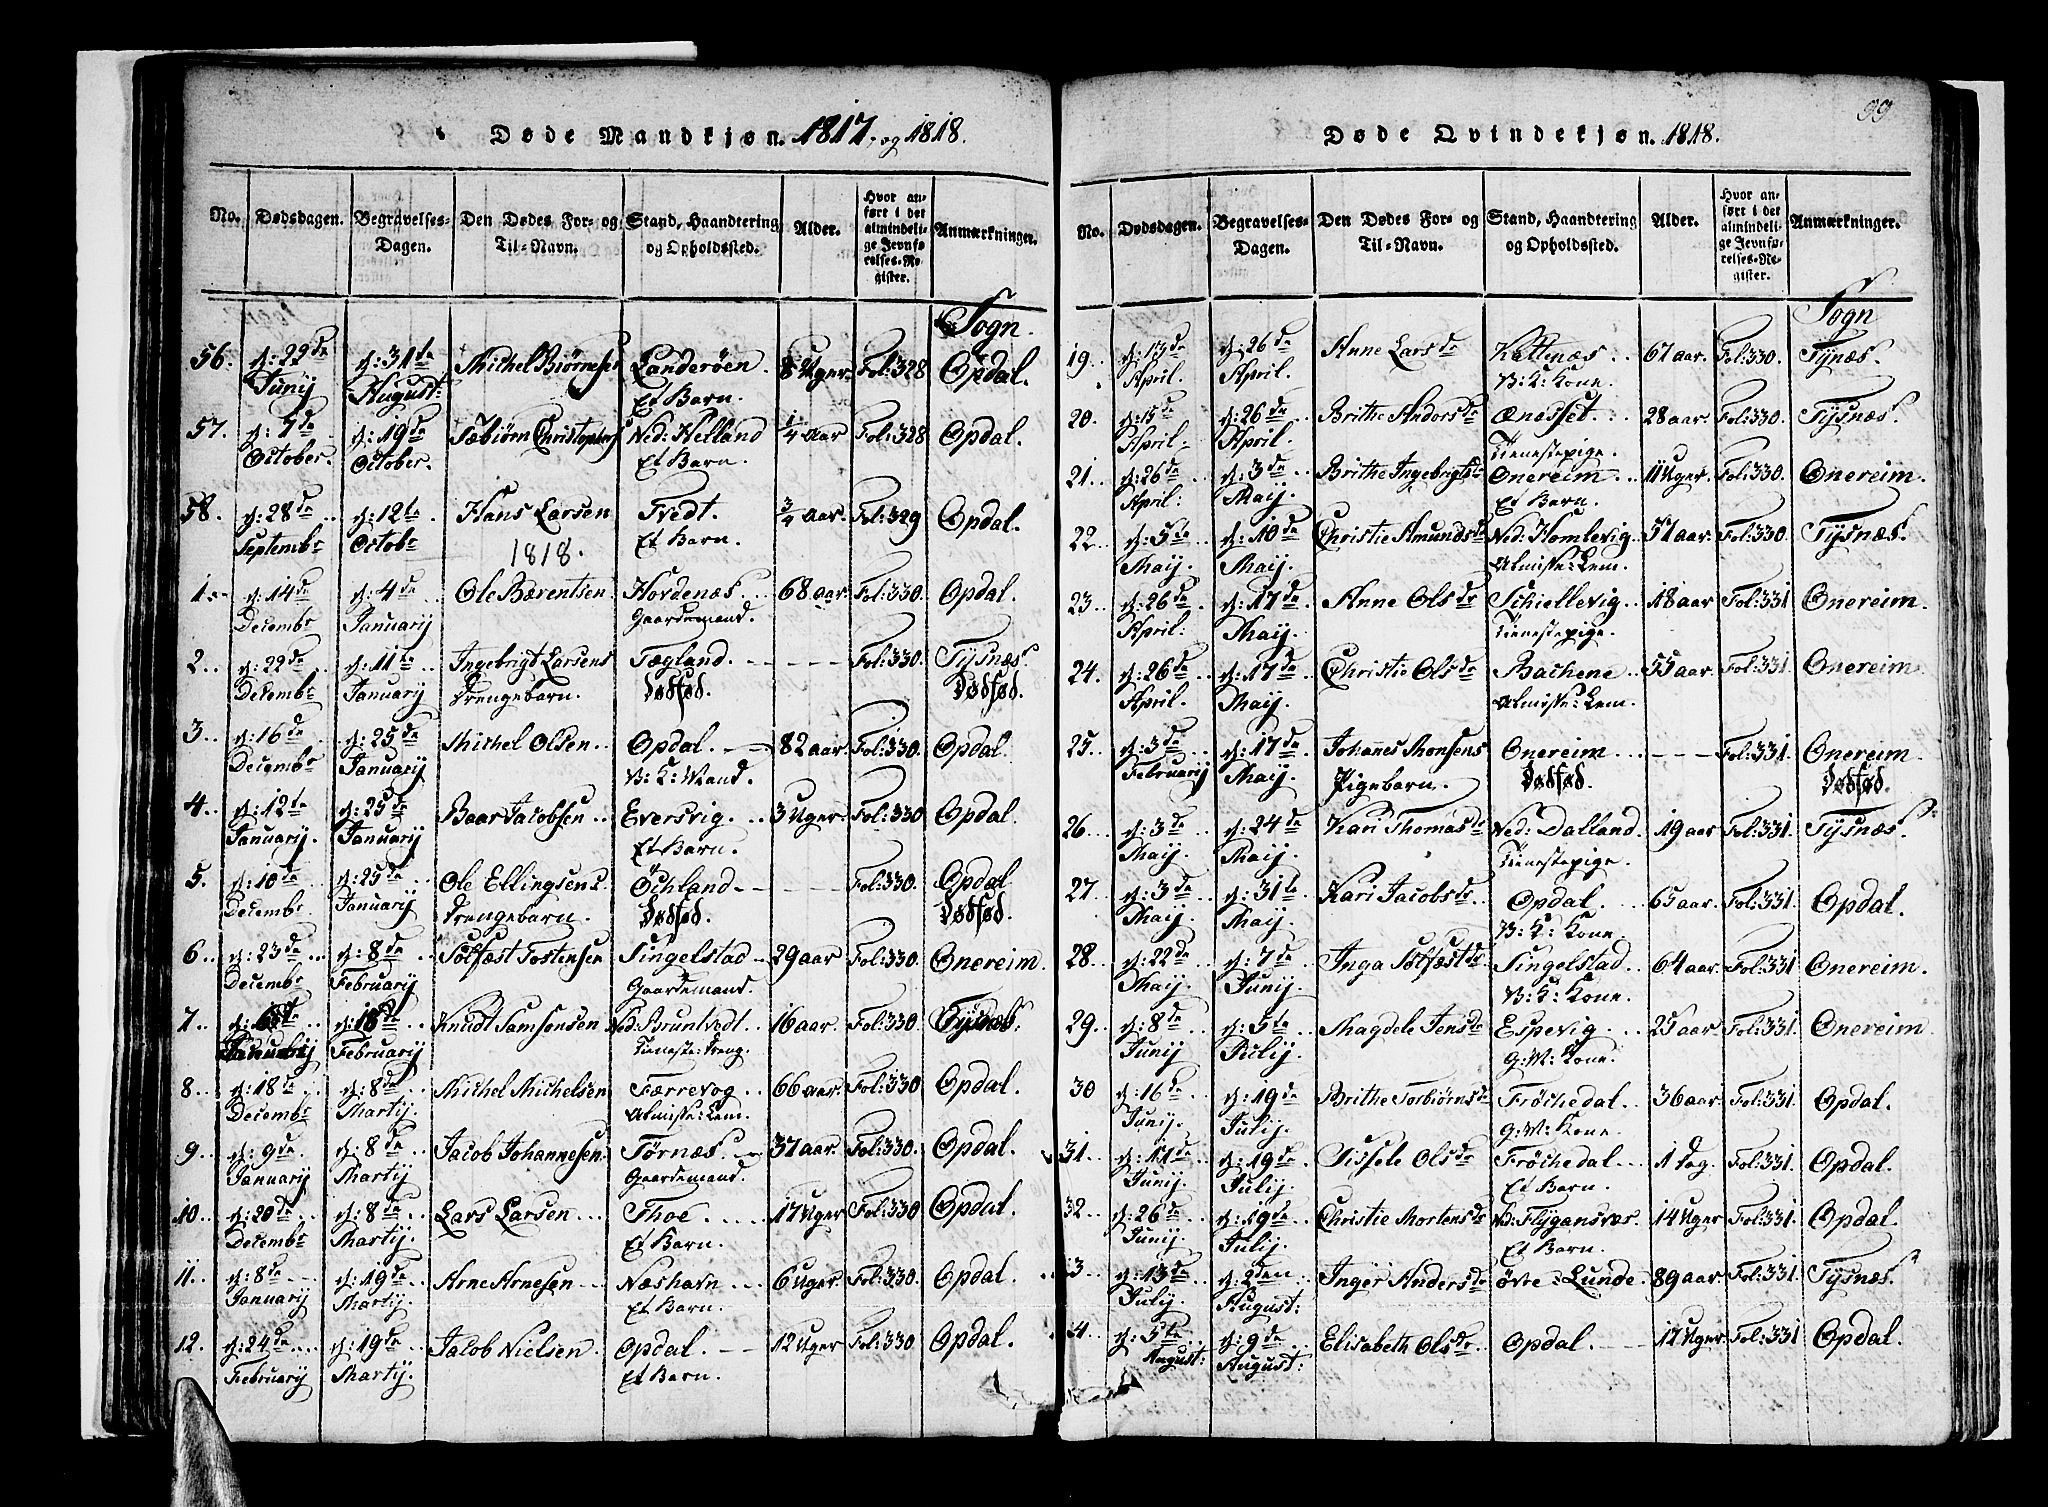 99
Døde Mandkjøn. 1817, og 1818.
No. Dødsdagen. Begravelses-Dagen. Den Dødes For- og Til-Navn. Stand, Haandtering og Opholdssted. Alder. Hvor anført i det almindelige Jevnførelses-Register. Anmærkninger.
Sogn
56. d: 22de d: 31te Michel Biørnesen Landerøen. 8 Uger. Fol: 328 Opdal.
Junij August: Et Barn.
57. d: 7de d: 19de Tæbiørn Christophers Ned: Helland 1/4 Aar Fol: 328 Opdal.
October. October. Et Barn.
58. d: 28de d: 12te Hans Larsen Tvedt. 3/4 aar. Fol: 329 Opdal.
Septembr Octobr 1818. Et Barn.
1. d: 14de d: 4de Ole Bærentsen Hordenæs. 68 aar. Fol: 330. Opdal.
Decembr Januarij Gaardemand.
2. d: 22de d: 11te Ingebrigt Larsens Tægland Fol: 330. Tysnæs.
Decembr Januarij Drengebarn. Dødfød. Dødfød.
3. d: 16de d: 25de Michel Olsen Opdal. 82 aar. Fol: 330. Opdal.
Decembr Januarij V: K: Mand.
4. d: 12te d: 25de Baar Jacobsen Eversvig. 3 Uger. Fol: 330 Opdal.
Januarij. Januarij Et Barn.
5. d: 10de d: 25de Ole Ellingsens Öchland Fol: 330. Opdal
Decembr Januarij Drengebarn. Dødfød. Dødfød.
6. d: 23de d: 8de Sølfæst Tostensen Singelstad 29 aar Fol: 330. Onereim.
Decembr Februarij Gaardemand.
7. d: d: 18de Knudt Samsonsen Ned: Bruntvedt 16 aar. Fol: 330 Tysnæs.
Januarij Februarij Tieneste: Dreng.
8. d: 18de d: 8de Michel Michelsen Færrevog 66 aar. Fol: 330 Opdal.
Decembr Martij. Almisse: Lem.
9. d: 9de d: 8de Jacob Johannesen Tørnæs. 37 aar. Fol: 330. Opdal.
Januarij Martij Gaardemand.
10. d: 20de d: 8de Lars Larsen Thoe. 17 Uger Fol: 330 Opdal.
Decembr Martij. Et Barn.
11. d: 8de d: 19de Arne Arnesen Næshavn 6 Uger. Fol: 330. Opdal.
Januarij Martij. Et Barn.
12. d: 24de d: 19de Jacob Nielsen. Opdal. 12 Uger Fol: 330 Opdal.
Februarij Martij. Et Barn.
Døde Qvindekjøn. 1818.
No. Dødsdagen. Begravelses-Dagen. Den Dødes For- og Til-Navn. Stand, Haandtering og Opholdssted. Alder. Hvor anført i det almindelige Jevnførelses-Register. Anmærkninger.
Sogn
19. d: 13de d: 26de Anne Larsdr Kattenæs 67 aar. Fol: 330. Tynæs.
April. April. V: K: Kone.
20. d: 15de d: 26de Brithe Andorsdr Ænæsset 28 aar. Fol: 330. Tysnæs.
April: April. Tienestepige.
21. d: 26de d: 3de Brithe Ingebrigtsdr Onereim 11 Uger. Fol: 330. Onereim.
April: Maij. Et Barn.
22. d: 5de d: 10de Christie Amundsdr Ned: Homlevig. 57 aar. Fol: 330 Tysnæs.
Maij. Maij. Almisse: Lem.
23. d: 26de d: 17de Anne Olsdr Schiellevig. 18 aar Fol: 331 Onereim.
April: Maij. Tienestepige.
24. d: 26de d: 17de Christie Olsdr Bachene 55 aar Fol: 331. Onereim
April. Maij. Almisse: Lem.
25. d: 3de d: 17de Johannes Monsens Onereim Fol: 331. Onereim
Februarij Maij. Pigebarn. Dødfød. Dødfød.
26. d: 3de d: 24de Kari Thomasdr Ned: Dalland. 19 aar Fol: 331. Tysnæs.
Maij. Maij. Tienestepige.
27. d: 3de d: 31te Kari Jacobsdr Opdal. 65 aar. Fol: 331. Opdal.
Maij. Maij. V: K: Kone.
28. d: 22de d: 7de Inga Sølfæstdr Singelstad 64 aar. Fol: 331 Onereim.
Maij. Junij. V: K: Kone.
29. d: 8de d: 5te Magdele Jensdr Espevig. 25 aar. Fol: 331. Onereim
Junij Julij. G: M: Kone.
30 d: 16de d: 19de Brithe Torbiørnsdr Frøchedal. 36 aar. Fol: 331. Opdal.
Junij. Julij. G: M: Kone
31. d: 11de d: 19de Sissele Olsdr Frøchedal 1 dag. Fol: 331. Opdal.
Junij. Julij. Et Barn.
32. d: 26de d: 19de Christie Mortensdr Ned: Flygansvæs 14 Uger Fol: 331. Opdal.
Junij. Julij. Et Barn.
3. d: 13de d: 2den Inger Andersdr øvre: Lunde. 89 aar. Fol: 331. Tysnæs.
Julij. August:
4. d: 5te d: 9de Elisabeth Olsdr Opdal. 17 Uger. Fol: 331 Opdal.
August: August: